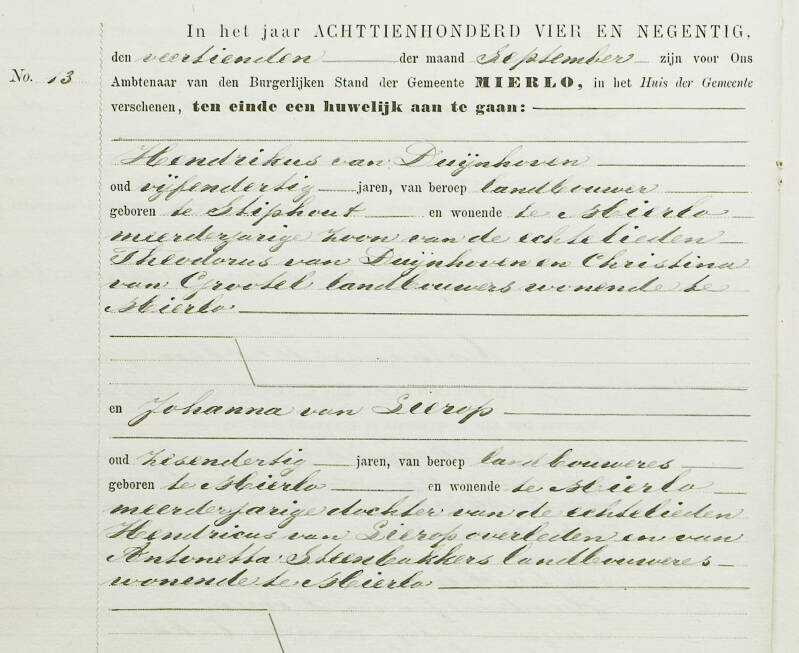 In het jaar ACHTTIENHONDERD VIER EN NEGENTIG,
den veertienden der maand September zijn voor Ons
No. 13 Ambtenaar van den Burgerlijken Stand der Gemeente MIERLO, in het Huis der Gemeente
verschenen, ten einde een huwelijk aan te gaan:
Hendrikus van Duijnhoven
oud vijfendertig jaren, van beroep landbouwer
geboren te Stiphout en wonende te Mierlo
meerderjarige zoon van de echtelieden
Theodorus van Duijnhoven en Christina
van Grootel landbouwers wonende te
Mierlo
en Johanna van Lierop
oud zesendertig jaren, van beroep landbouweres
geboren te Mierlo en wonende te Mierlo
meerderjarige dochter van de echtelieden
Hendricus van Lierop overleden en van
Antonetta Steenbakkers landbouweres
wonende te Mierlo